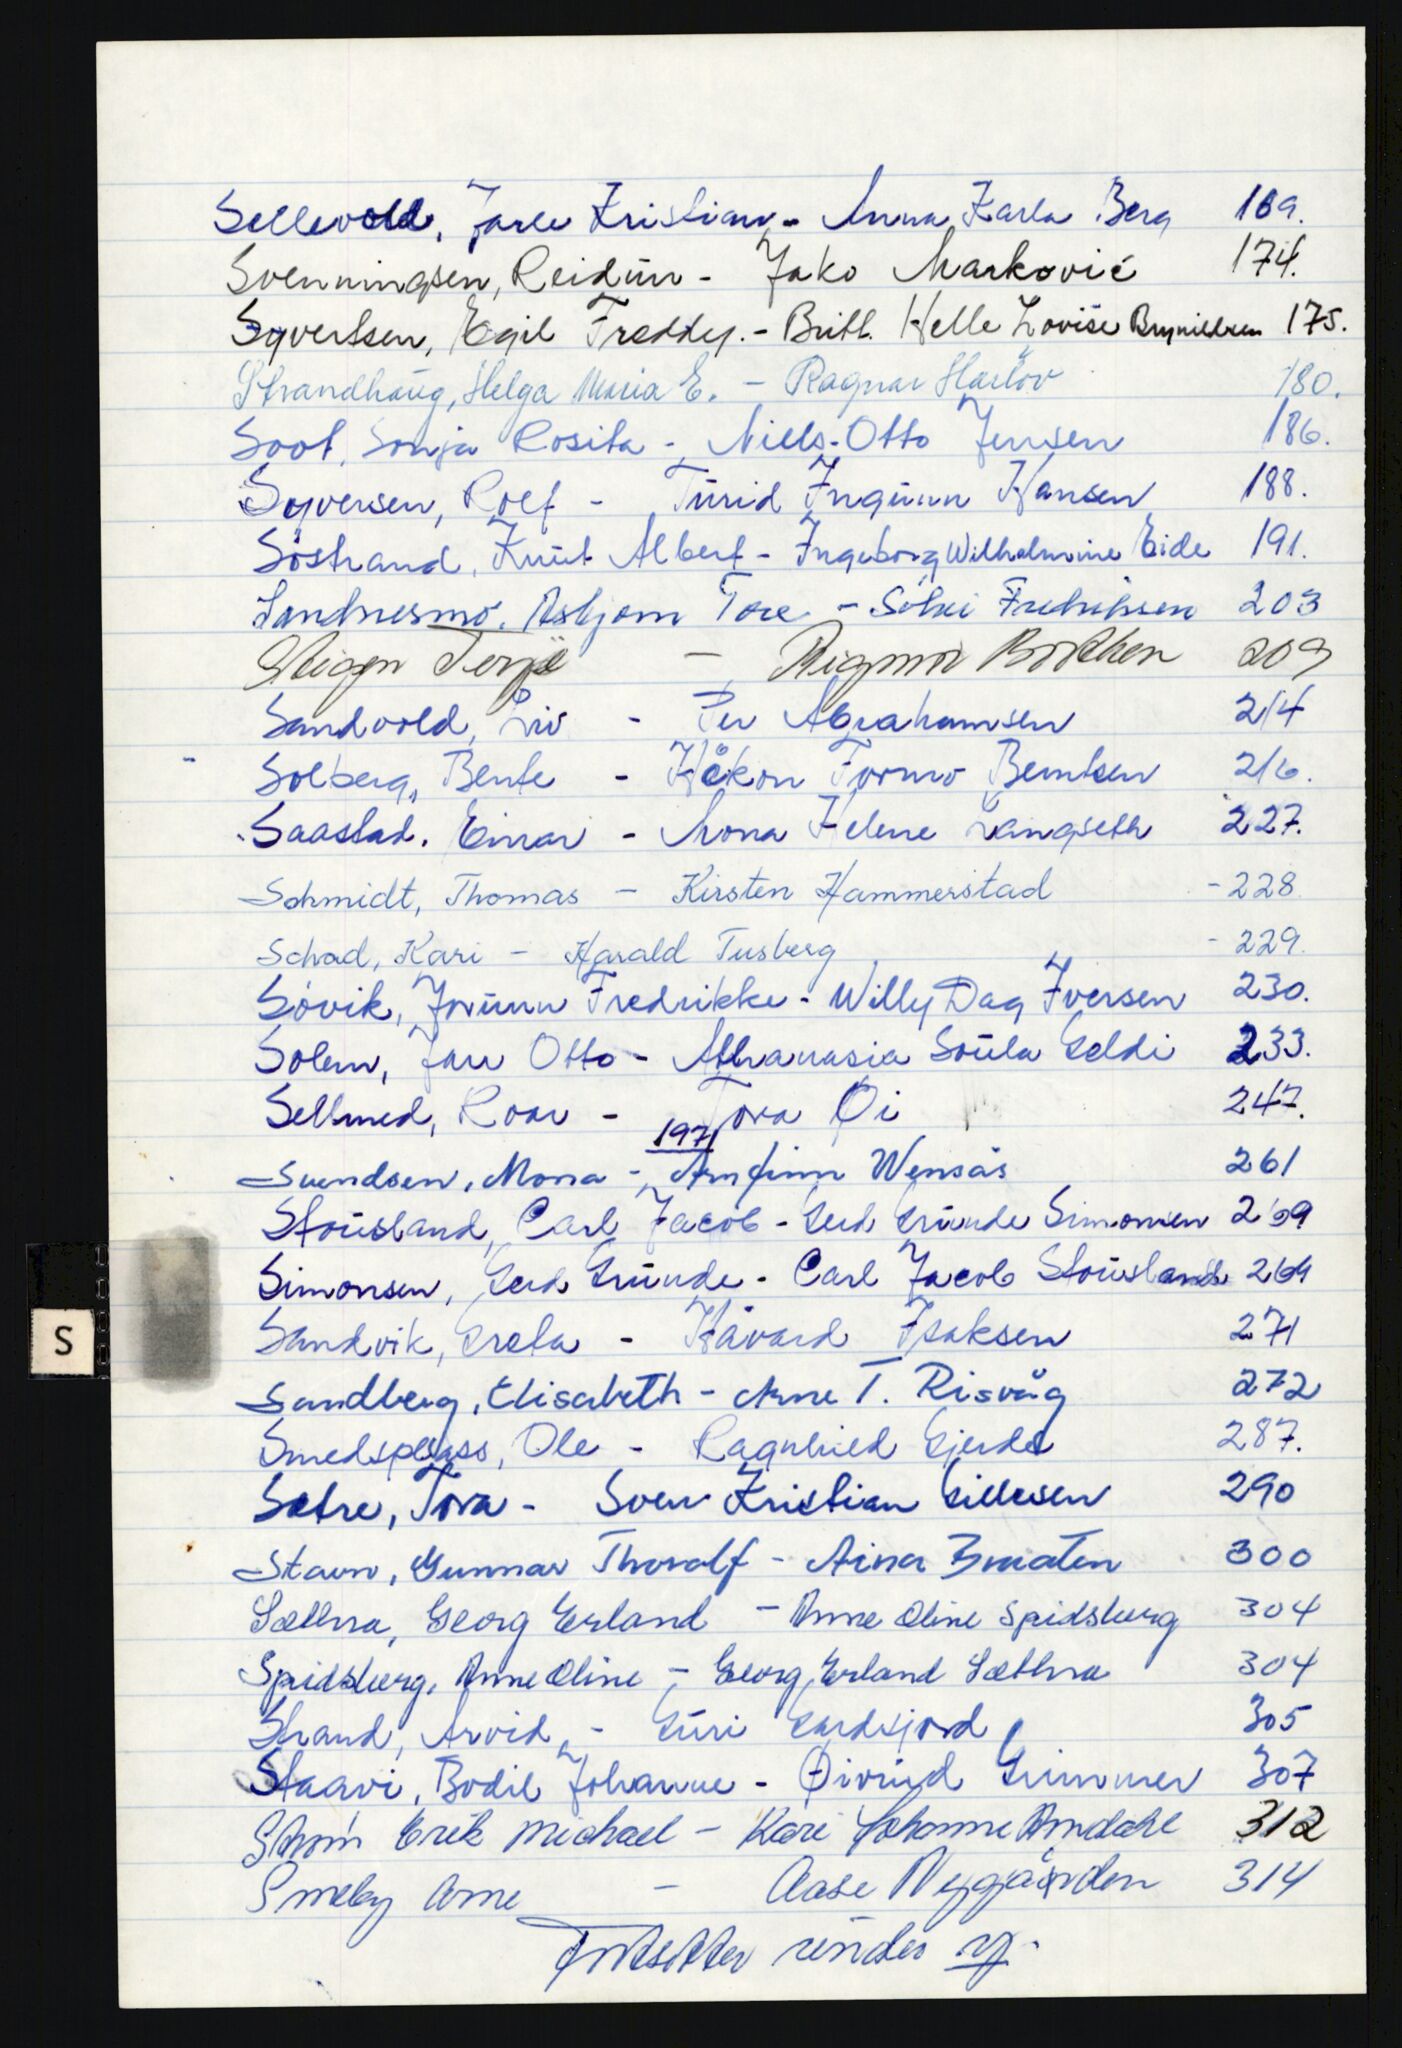 Sellevold, Jarle Kristian - Anna Karla Berg 169.
Svenningsen, Reidun - Jako Marković 174.
Syvertsen, Egil Freddy. - Britt Helle Lovise Brynildsen 175.
Strandhaug, Helga Maria E. - Ragnar Harlöv 180.
Soot, Sonja Rosita - Niels-Otto Jensen 186.
Syversen, Rolf - Turid Ingunn Hansen 188.
Söstrand, Knut Albert - Ingeborg Wilhelmine Eide 191.
Sandnesmo, Asbjørn Tore - Sölvi Fredriksen 203
Steigen Terje - Rigmor 209
Sandvold, Liv - Per Abrahamsen 214
Solberg, Bente - Håkon Tormo Berntsen 216.
Saastad, Einar - Mona Helene Langseth 227.
Schmidt, Thomas - Kirsten Hammerstad - 228
Schad, Kari - Harald Tusberg - 229.
Sövik, Jorunn Fredrikke - Willy Dag Iversen 230.
Solem, Jan Otto - Athanasia Soula Geldi 233.
Sellmed, Roar - Tora Øi 247.
1971
Svendsen, Mona - Arnfinn Wensås 261
Stousland, Carl Jacob - Gerd Grunde Simonsen 269
Simonsen, Gerd Grunde - Carl Jacob Stousland 269
Sandvik, Greta - Håvard Isaksen 271
Sandberg, Elisabeth - Arne T. Risvåg 272
Smedsplass, Ole - Ragnhild Gjerde 287.
Sætre, Tova - Sven Kristian Gillesen 290
Stavn, Gunnar Thoralf - Aina Braaten 300
Sæthra, Georg Erland - Anne Oline Spidsberg 304
Spidsberg, Anne Oline - Georg Erland Sæthra 304
Strand, Arvid - Guri Gardsjord 305
Staavi, Bodil Johanne - Øivind Grimmer 307
Strøm Erik Michael - Kari Johanne Amdahl 312
Smeby Arne - Aase Nygården 314
Fortsetter under Y.